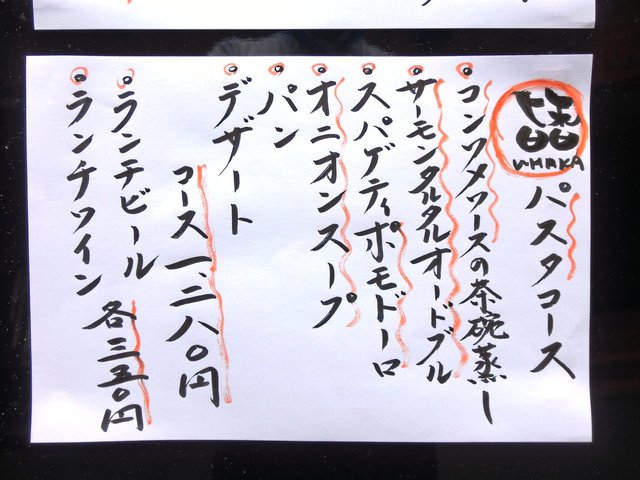 WHAKA
パスタコース
コンソメソースの茶碗蒸し
サーモンタルタルオードブル
スパゲティポモドーロ
オニオンスープ
パン
デザート
コース一、二八〇円
ランチビール
ランチワイン
各三五〇円